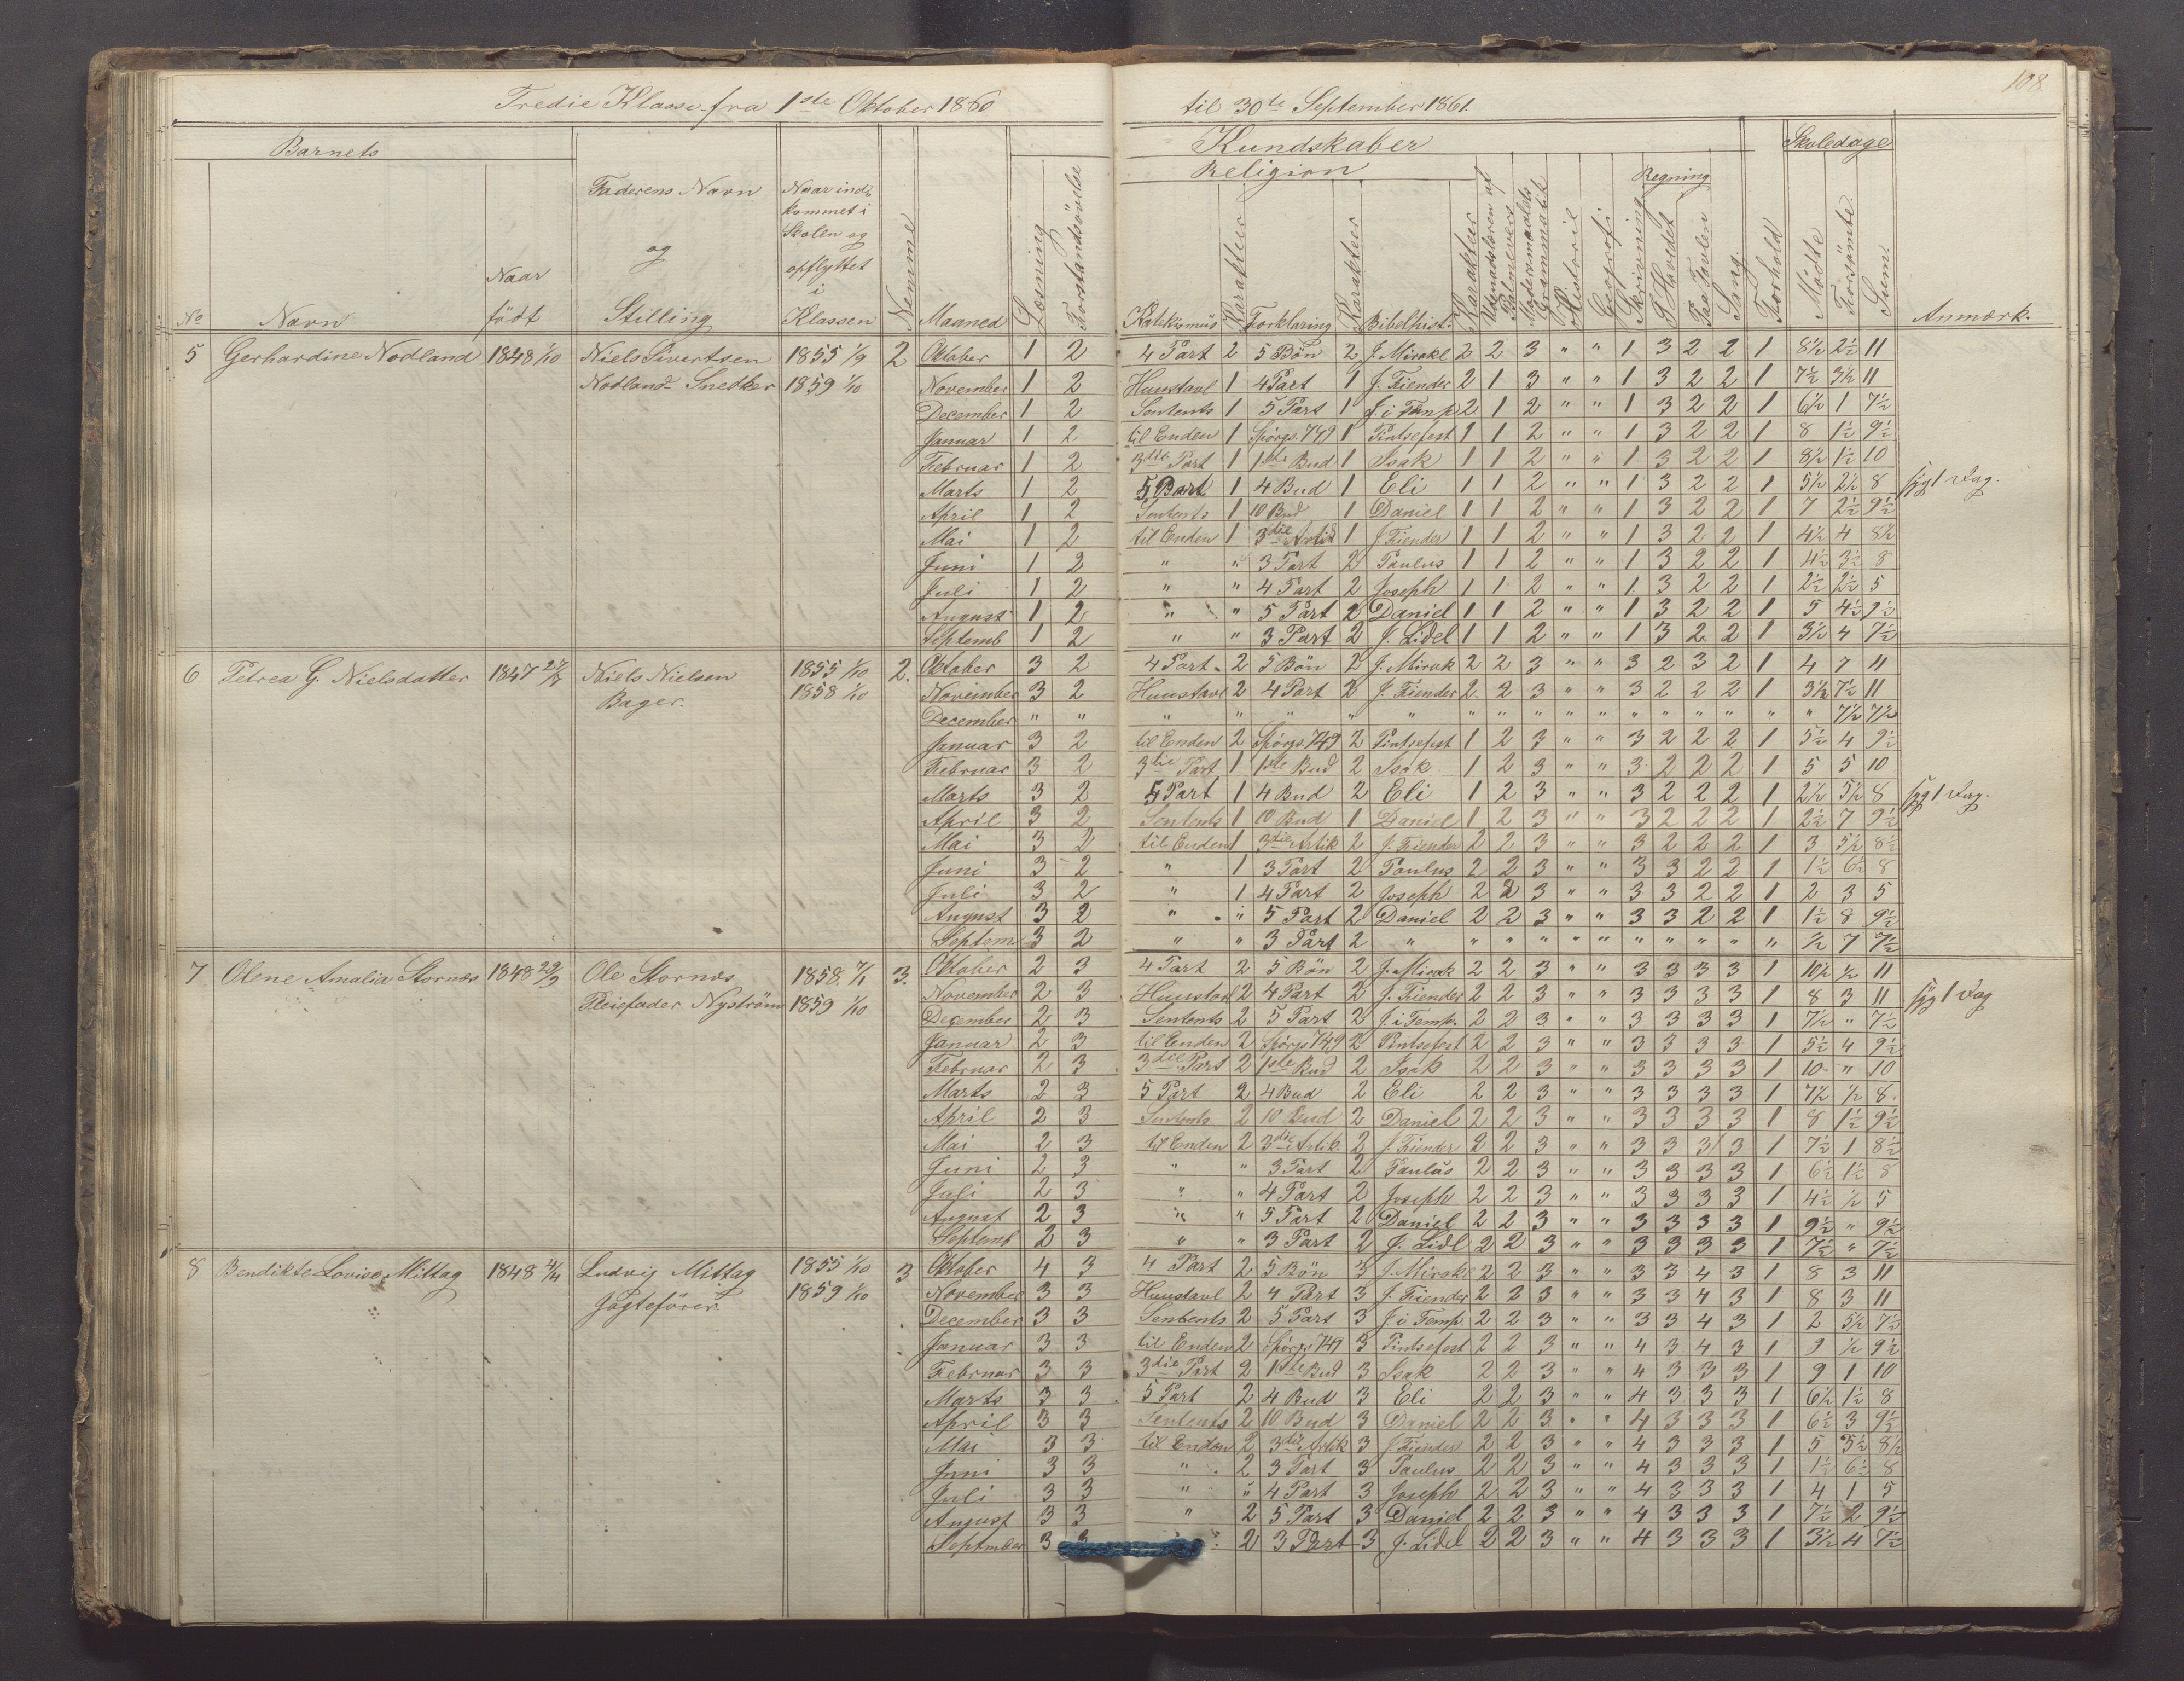 108.
Tredie Klasse fra 1ste Oktober 1860 til 30te September 1861.
Barnets
No Navn Naar født
Faderens Navn og Stilling
Naar ind= kommet i Skolen og opflyttet i Klassen
Nemme
Maaned
Læsning
Forstandsøvelse
Kundskaber
Religion
Katekismus Karakteer Forklaring Karakteer Bibelhist. Karakteer
Udenadslæren af Psalmevers
Modersmaalets Grammatik
Historie
Geografi
Skrivning
Regning
I Hovedet
Paa Tavlen
Sang
Forhold
Skoledage
Mødte Forsømte Sum
Anmærk.
5 Gerhardine Nodland 1848 1/10 Niels Sivertsen 1855 1/9 2 Oktober 1 2 4 Part 2 5 Bön 2 J. Mirakl 2 2 3 " " 1 3 2 2 1 8½ 2½ 11
Nodland Snedker 1859 1/10 November 1 2 Huustavl 1 4 Part 1 J. Fiender 2 1 3 " " 1 3 2 2 1 7½ 3½ 11
December 1 2 Sentents 1 5 Part 1 J. i Temp 2 1 2 " " 1 3 2 2 1 6½ 1 7½
Januar 1 2 til Enden 1 Spörgs. 749 1 Pintsefest 1 1 2 " " 1 3 2 2 1 8 1½ 9½
Februar 1 2 3die Part 1 1ste Bud 1 Isak 1 1 2 " " 1 3 2 2 1 8½ 1½ 10
Marts 1 2 5 Part 1 4 Bud 1 Eli 1 1 2 " " 1 3 2 2 1 5½ 2½ 8 syg 1 Dag.
April 1 2 Sentents 1 10 Bud 1 Daniel 1 1 2 " " 1 3 2 2 1 7 2½ 9½
Mai 1 2 til Enden 1 3die Artik 1 J. Fiender 1 1 2 " " 1 3 2 2 1 4½ 4 8½
Juni 1 2 " " 3 Part 2 Paulus 1 1 2 " " 1 3 2 2 1 4½ 3½ 8
Juli 1 2 " " 4 Part 2 Joseph 1 1 2 " " 1 3 2 2 1 2½ 2½ 5
August 1 2 " " 5 Part 2 Daniel 1 1 2 " " 1 3 2 2 1 5 4½ 9½
Septemb 1 2 " " 3 Part 2 J. Lidel 1 1 2 " " 1 3 2 2 1 3½ 4 7½
6 Petrea G. Nielsdatter 1847 Niels Nielsen 1855 1/10 2. Oktober 3 2 4 Part 2 5 Bön 2 J. Mirak 2 2 3 " " 3 2 3 2 1 4 7 11
Bager. 1858 1/10 November 3 2 Huustavl 2 4 Part 2 J. Fiender 2 2 3 " " 3 2 2 2 1 3½ 7½ 11
December " " " " " " " " " " " " " " " " " " 7½ 7½
Januar 3 2 til Enden 2 Spörgs. 749 2 Pintsefest 1 2 3 " " 3 2 2 2 1 5½ 4 9½
Februar 3 2 3die Part 1 1ste Bud 2 Isak 1 2 3 " " 3 2 2 2 1 5 5 10
Marts 3 2 5 Part 1 4 Bud 2 Eli 1 2 3 " " 3 2 2 2 1 2½ 5½ 8 syg 1 Dag.
April 3 2 Sentents 1 10 Bud 1 Daniel 1 2 3 " " 3 2 2 2 1 2½ 7 9½
Mai 3 2 til Enden 1 3die Artik 2 J. Fiender 2 2 3 " " 3 2 2 2 1 3 5½ 8½
Juni 3 2 " 1 3 Part 2 Paulus 2 2 3 " " 3 3 2 2 1 1½ 6½ 8
Juli 3 2 " 1 4 Part 2 Joseph 2 2 3 " " 3 3 2 2 1 2 3 5
August 3 2 " " 5 Part 2 Daniel 2 2 3 " " 3 3 2 2 1 1½ 8 9½
Septem 3 2 " " 3 Part 2 " " " " " " " " " " " ½ 7 7½
7 Olene Amalia Stornæs 1848 29/9 Ole Stornæs 1858 7/1 3. Oktober 2 3 4 Part 2 5 Bön 2 J. Mirak 2 2 3 " " 3 3 3 3 1 10½ ½ 11
Pleiefader Nyström 1859 1/10 November 2 3 Huustavl 2 4 Part 2 J. Fiender 2 2 3 " " 3 3 3 3 1 8 3 11 syg 1 Dag
December 2 3 Sentents 2 5 Part 2 J. i Temp. 2 2 3 " " 3 3 3 3 1 7½ " 7½
Januar 2 3 til Enden 2 Spörgs 749 2 Pintsefest 2 2 3 " " 3 3 3 3 1 5½ 4 9½
Februar 2 3 3die Part 2 1ste Bud 2 Isak 2 2 3 " " 3 3 3 3 1 10 " 10
Marts 2 3 5 Part 2 4 Bud 2 Eli 2 2 3 " " 3 3 3 3 1 7½ ½ 8
April 2 3 Sentents 2 10 Bud 2 Daniel 2 2 3 " " 3 3 3 3 1 8 1½ 9½
Mai 2 3 til Enden 2 3die Artik. 2 J. Fiender 2 2 3 " " 3 3 3 3 1 7½ 1 8½
Juni 2 3 " " 3 Part 2 Paulus 2 2 3 " " 3 3 3 3 1 6½ 1½ 8
Juli 2 3 " " 4 Part 2 Joseph 2 2 3 " " 3 3 3 3 1 4½ ½ 5
August 2 3 " " 5 Part 2 Daniel 2 2 3 " " 3 3 3 3 1 9½ " 9½
Septemb 2 3 " " 3 Part 2 J. Lidl 2 2 3 " " 3 3 3 3 1 7½ " 7½
8 Bendikte Lovise Mittag 1848 Ludvig Mittag 1855 1/10 3 Oktober 4 3 4 Part 2 5 Bön 3 J. Mirakl 2 2 3 " " 3 3 4 3 1 8 3 11
Jagtefører 1859 1/10 November 3 3 Huustavl 2 4 Part 3 J. Fiender 2 2 3 " " 3 3 4 3 1 8 3 11
December 3 3 Sentents 2 5 Part 3 J i Temp. 2 2 3 " " 3 3 4 3 1 2 5½ 7½
Januar 3 3 til Enden 2 Spörgs 749 3 Pintsefest 2 2 3 " " 4 3 4 3 1 9 ½ 9½
Februar 3 3 3die Part 2 1ste Bud 3 Isak 2 2 3 " " 4 3 3 3 1 9 1 10
Marts 3 3 5 Part 2 4 Bud 3 Eli 2 2 3 " " 4 3 3 3 1 6½ 1½ 8
April 3 3 Sentents 2 10 Bud 3 Daniel 2 2 3 " " 4 3 3 3 1 6½ 3 9½
Mai 3 3 til Enden 2 3die Artik 3 J. Fiender 2 2 3 " " 4 3 3 3 1 5 3½ 8½
Juni 3 3 " 2 3 Part 3 Paulus 2 2 3 " " 4 3 3 3 1 1½ 6½ 8
Juli 3 3 " " 4 Part 3 Joseph 2 2 3 " " 4 3 3 3 1 4 1 5
August 3 3 " 2 5 Part 3 Daniel 2 2 3 " " 4 3 3 3 1 7½ 2 9½
September 3 3 2 3 Part 3 J. Lidel 2 2 3 " " 4 3 3 3 1 3½ 4 7½